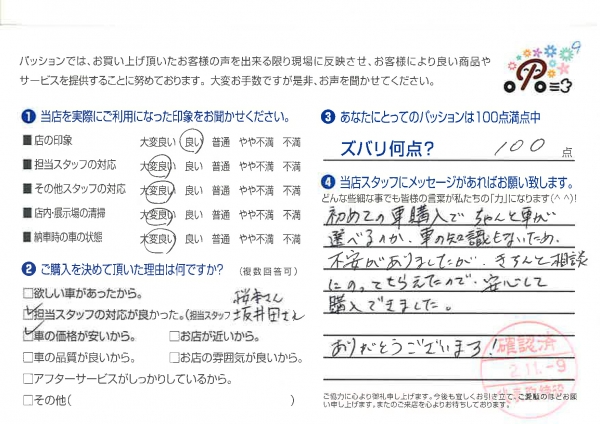 パッションでは、お買い上げ頂いたお客様の声を出来る限り現場に反映させ、お客様により良い商品や
サービスを提供することに努めております。大変お手数ですが是非、お声を聞かせてください。
9
❶ 当店を実際にご利用になった印象をお聞かせください。
■ 店の印象 大変良い 良い 普通 やや不満 不満
■ 担当スタッフの対応 大変良い 良い 普通 やや不満 不満
■ その他スタッフの対応 大変良い 良い 普通 やや不満 不満
■ 店内・展示場の清掃 大変良い 良い 普通 やや不満 不満
■ 納車時の車の状態 大変良い 良い 普通 やや不満 不満
❷ ご購入を決めて頂いた理由は何ですか? (複数回答可)
□欲しい車があったから。
桜本さん
☑担当スタッフの対応が良かった。(担当スタッフ 坂井田さん
☑車の価格が安いから。 □お店が近いから。
□車の品質が良いから。 □お店の雰囲気が良いから。
□アフターサービスがしっかりしているから。
□その他( )
❸ あなたにとってのパッションは100点満点中
ズバリ何点? 100 点
❹ 当店スタッフにメッセージがあればお願い致します。
どんな些細な事でも皆様の言葉が私たちの「力」になります(^ ^)!
初めての車購入で ちゃんと車が
選べるのか、車の知識もないため、
不安がありましたが、きちんと相談
にのってもらえたので、安心して
購入できました。
ありがとうございます!
確認済
2.11.-9
ご協力に心より御礼申し上げます。今後も宜しくお引き立て、ご愛顧のほどお願い申し上げます。またのご来店を心よりお待ちしております。